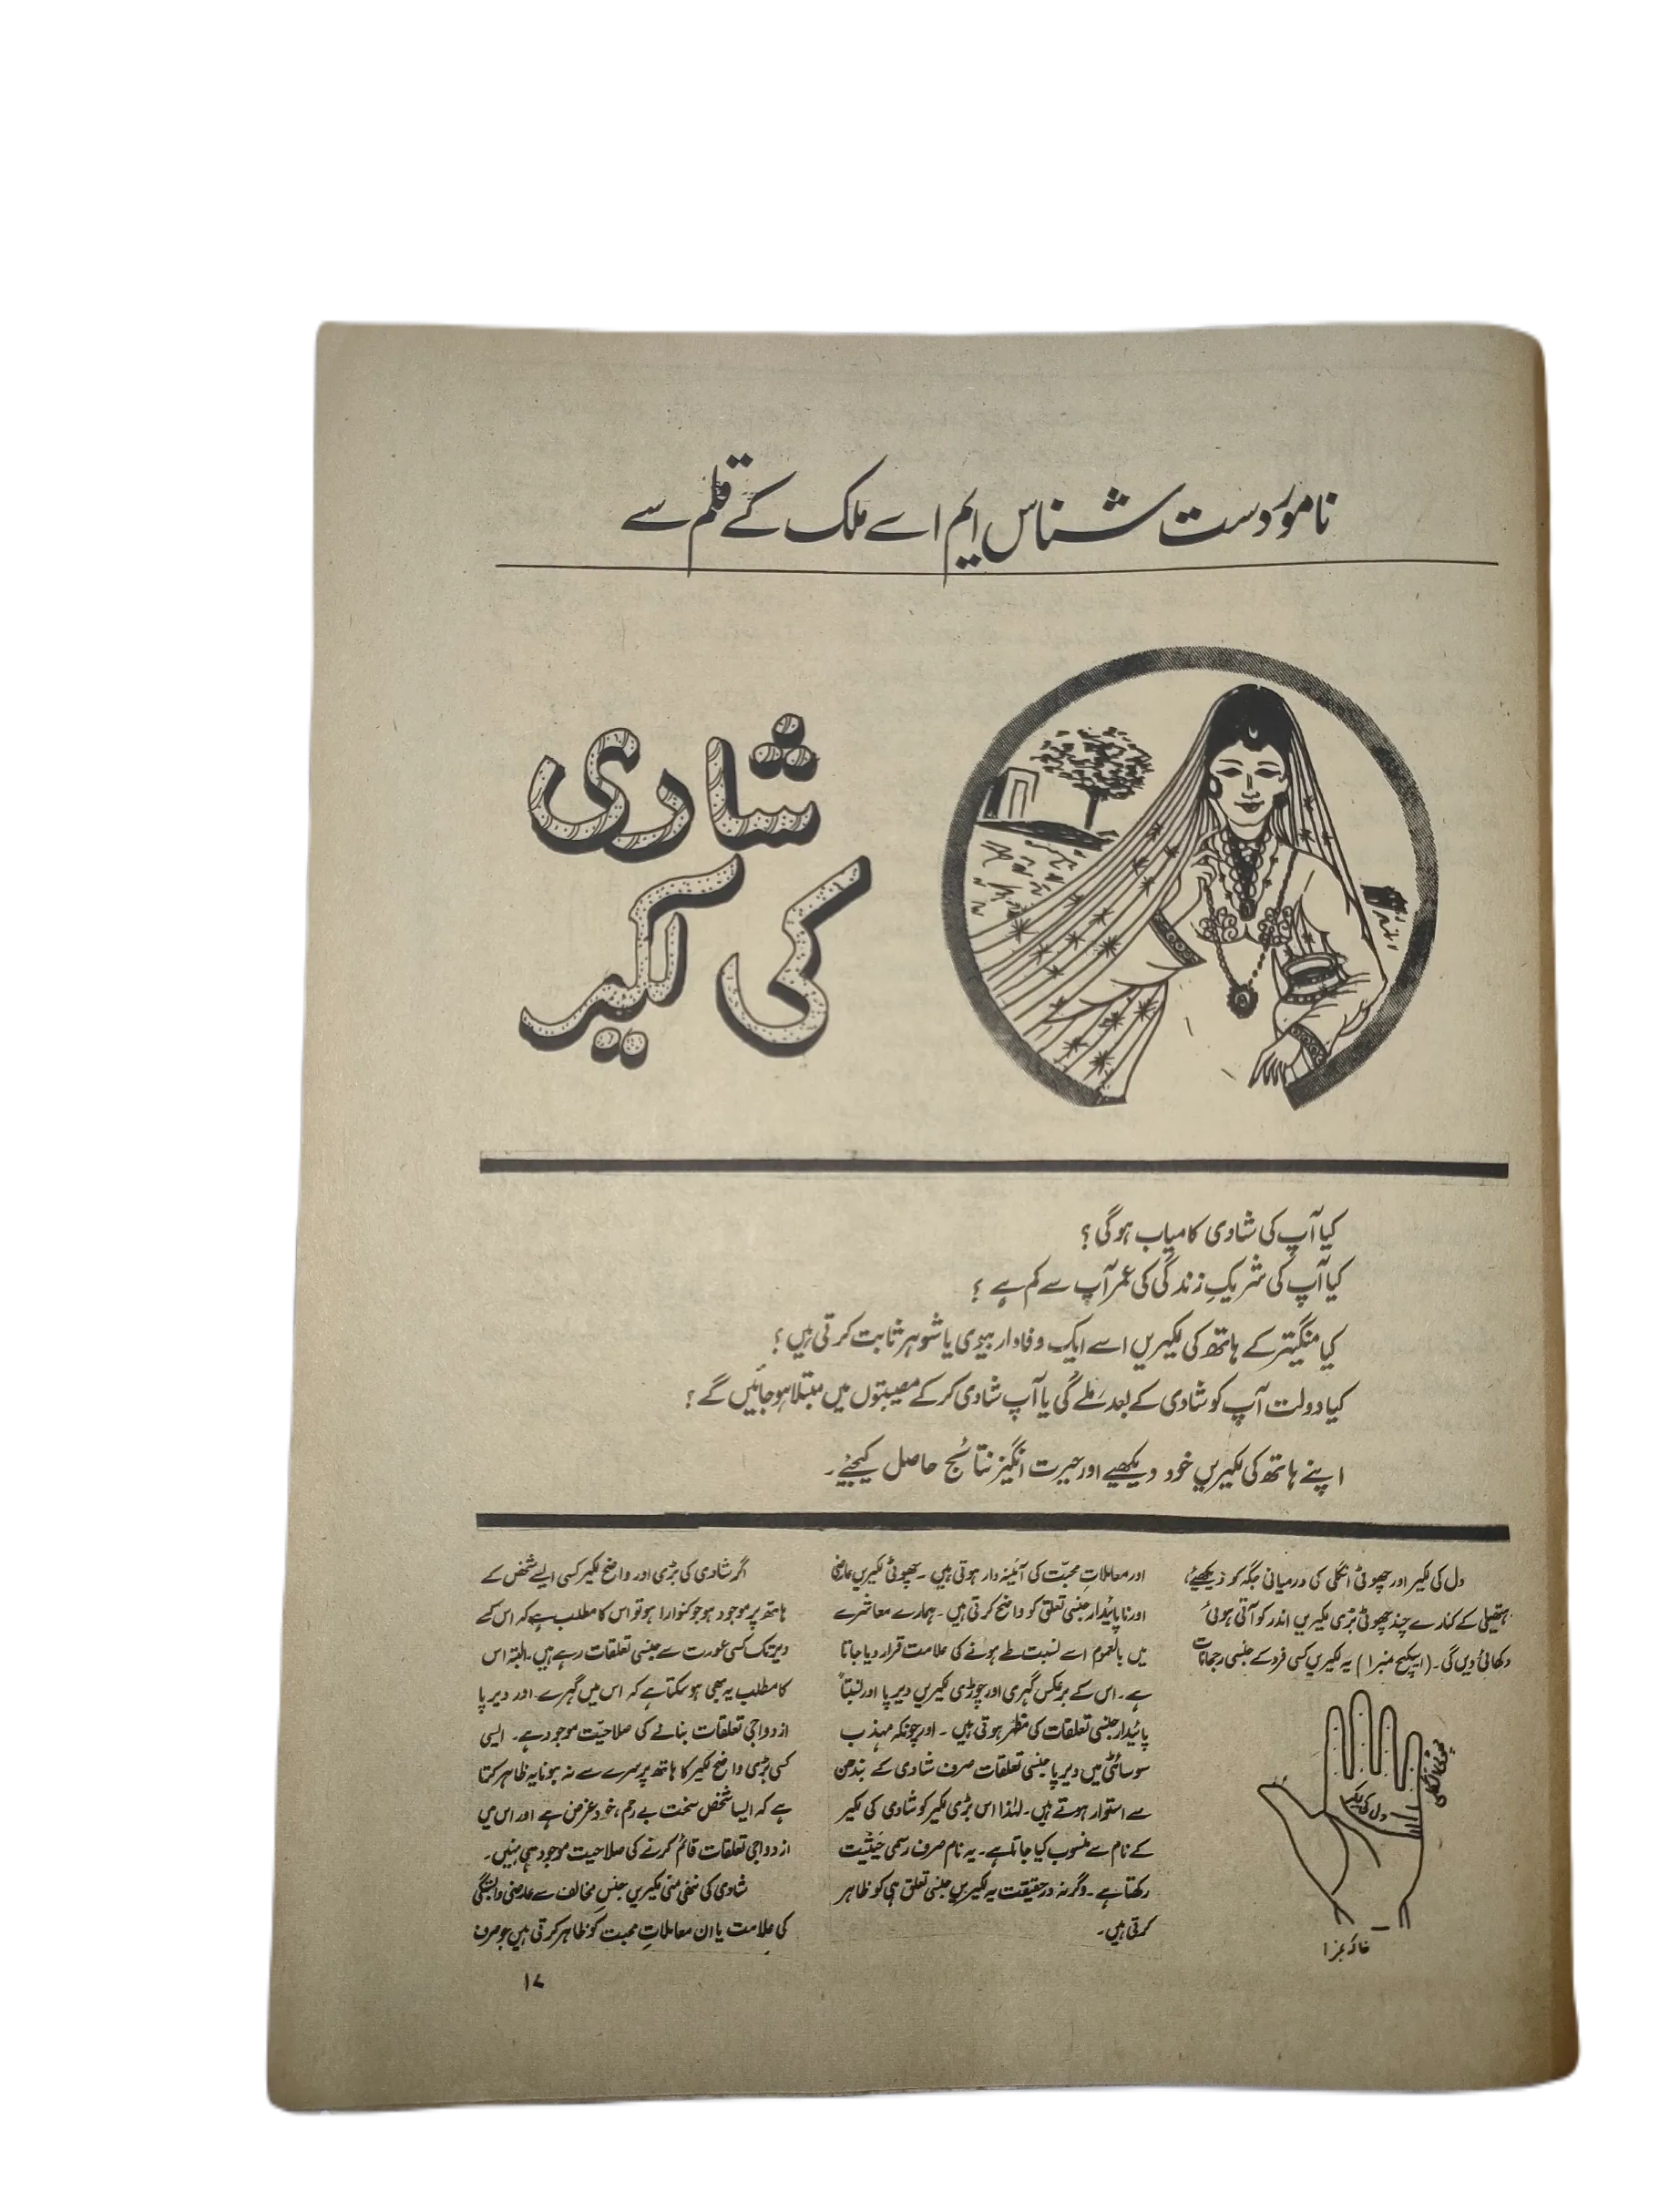 نامور دست شناس ایم اے ملک کے قلم سے
شادی
کی لکیر
کیا آپ کی شادی کامیاب ہوگی؟
کیا آپ کی شریکِ زندگی کی عمر آپ سے کم ہے ؟
کیا منگیتر کے ہاتھ کی لکیریں اسے ایک وفادار بیوی یا شوہر ثابت کرتی ہیں؟
کیا دولت آپ کو شادی کے بعد ملے گی یا آپ شادی کر کے مصیبتوں میں مبتلا ہو جائیں گے؟
اپنے ہاتھ کی لکیریں خود دیکھیے اور حیرت انگیز نتائج حاصل کیجئے۔
دل کی لکیر اور چھوٹی انگلی کی درمیانی جگہ کو دیکھیئے،
ہتھیلی کے کنارے چند چھوٹی بڑی لکیریں اندر کو آتی ہوئی
دکھائی دیں گی۔ (اسکیچ نمبر ۱) یہ لکیریں کسی فرد کے جنسی رجحانات
چھوٹی انگلی
دل کی لکیر
خاکہ نمبر ۱
اور معاملاتِ محبت کی آئینہ دار ہوتی ہیں۔ چھوٹی لکیریں عارضی
اور ناپائیدار جنسی تعلق کو واضح کرتی ہیں۔ ہمارے معاشرے
میں بالعموم اسے نسبت طے ہونے کی علامت قرار دیا جاتا
ہے۔ اس کے برعکس گہری اور چوڑی لکیریں دیرپا اور نسبتاً
پائیدار جنسی تعلقات کی مظہر ہوتی ہیں۔ اور چونکہ مہذب
سوسائٹی میں دیرپا جنسی تعلقات صرف شادی کے بندھن
سے استوار ہوتے ہیں۔ لہٰذا اس بڑی لکیر کو شادی کی لکیر
کے نام سے منسوب کیا جاتا ہے۔ یہ نام صرف رسمی حیثیت
رکھتا ہے۔ وگرنہ درحقیقت یہ لکیریں جنسی تعلق ہی کو ظاہر
کرتی ہیں۔
اگر شادی کی بڑی اور واضح لکیر کسی ایسے شخص کے
ہاتھ پر موجود ہو جو کنوارا ہو تو اس کا مطلب ہے کہ اس کے
دیر تک کسی عورت سے جنسی تعلقات رہے ہیں۔ البتہ اس
کا مطلب یہ بھی ہو سکتا ہے کہ اس میں گہرے اور دیرپا
ازدواجی تعلقات بنانے کی صلاحیت موجود ہے۔ ایسی
کسی بڑی واضح لکیر کا ہاتھ پر سرے سے نہ ہونا یہ ظاہر کرتا
ہے کہ ایسا شخص سخت بے رحم، خود غرض ہے اور اس میں
ازدواجی تعلقات قائم کرنے کی صلاحیت موجود ہی نہیں۔
شادی کی ننھی منی لکیریں جنسِ مخالف سے عارضی وابستگی
کی علامت یا ان معاملاتِ محبت کو ظاہر کرتی ہیں جو صرف
۱۷